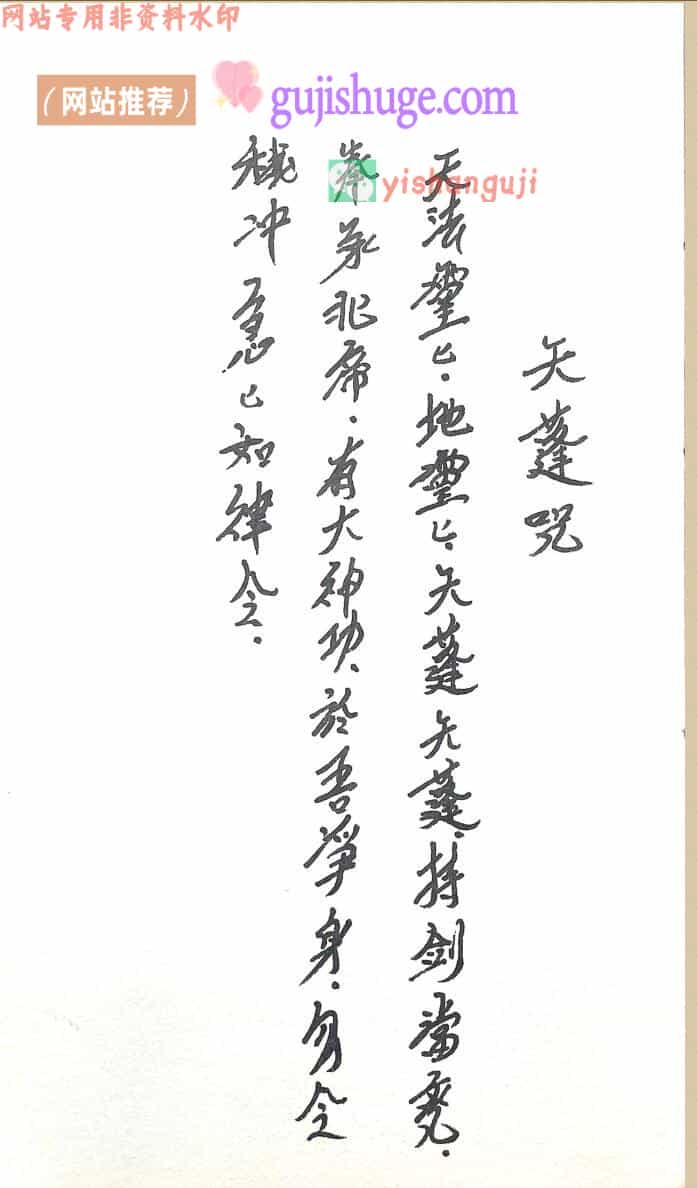 网站专用非资料水印
（网站推荐）
gujishuge.com
yishanguji
天蓬咒
天法灵〻.地灵〻.天蓬天蓬.持剑当
奉承北帝.有大神功.於吾净身.勿令
秽冲急〻如律令.